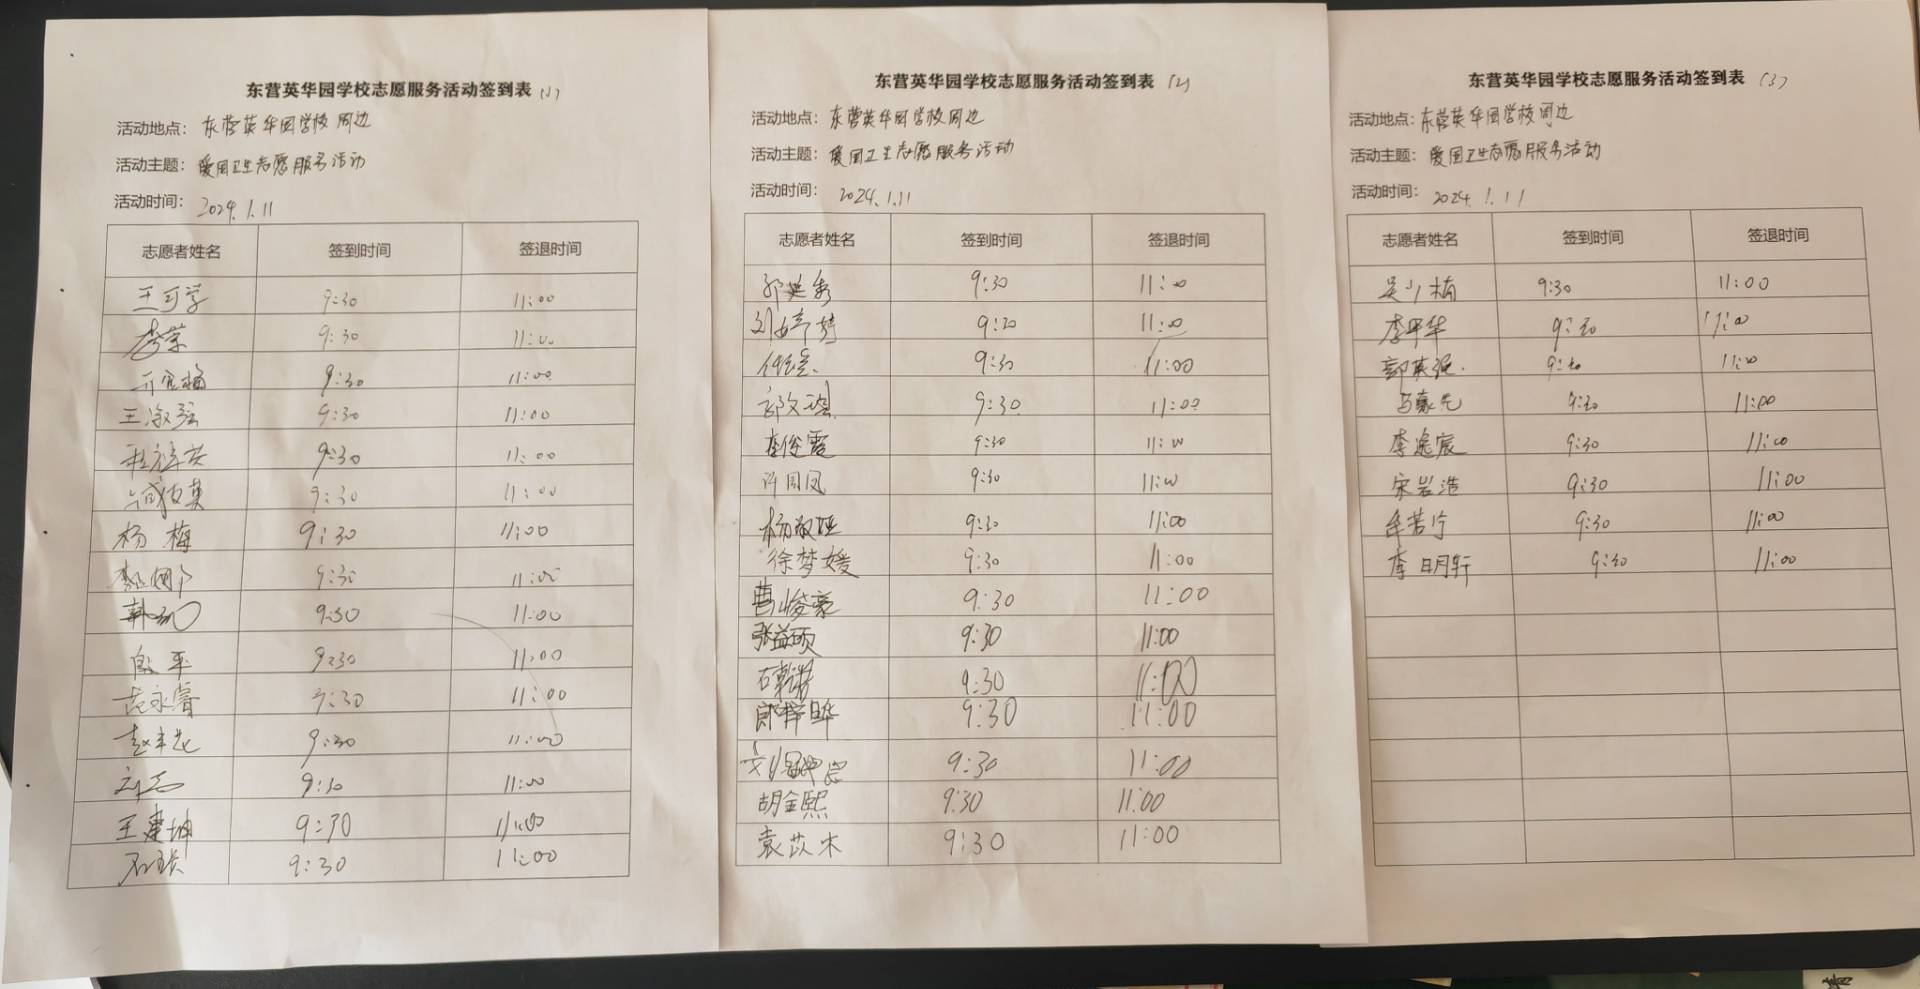 东营英华园学校志愿服务活动签到表 (1)
活动地点: 东营英华园学校周边
活动主题: 爱国卫生志愿服务活动
活动时间: 2024.1.11
志愿者姓名 签到时间 签退时间
王可学 9:30 11:00
9:30 11:00
9:30 11:00
王淑强 9:30 11:00
9:30 11:00
9:30 11:00
杨梅 9:30 11:00
9:30 11:00
9:30 11:00
平 9:30 11:00
9:30 11:00
赵 9:30 11:00
9:30 11:00
王建坤 9:30 11:00
9:30 11:00
东营英华园学校志愿服务活动签到表 (2)
活动地点: 东营英华园学校周边
活动主题: 爱国卫生志愿服务活动
活动时间: 2024.1.11
志愿者姓名 签到时间 签退时间
郭延秀 9:30 11:00
刘婷婷 9:30 11:00
9:30 11:00
9:30 11:00
李俊霞 9:30 11:00
许国凤 9:30 11:00
杨 9:30 11:00
徐梦媛 9:30 11:00
曹峻豪 9:30 11:00
张益硕 9:30 11:00
9:30 11:00
郎梓晔 9:30 11:00
刘 9:30 11:00
胡金熙 9:30 11:00
袁苡木 9:30 11:00
东营英华园学校志愿服务活动签到表 (3)
活动地点: 东营英华园学校周边
活动主题: 爱国卫生志愿服务活动
活动时间: 2024.1.11
志愿者姓名 签到时间 签退时间
吴小楠 9:30 11:00
李甲华 9:30 11:00
郭英强 9:30 11:00
马豪先 9:30 11:00
李逸宸 9:30 11:00
宋岩浩 9:30 11:00
牟若宁 9:30 11:00
李明轩 9:30 11:00